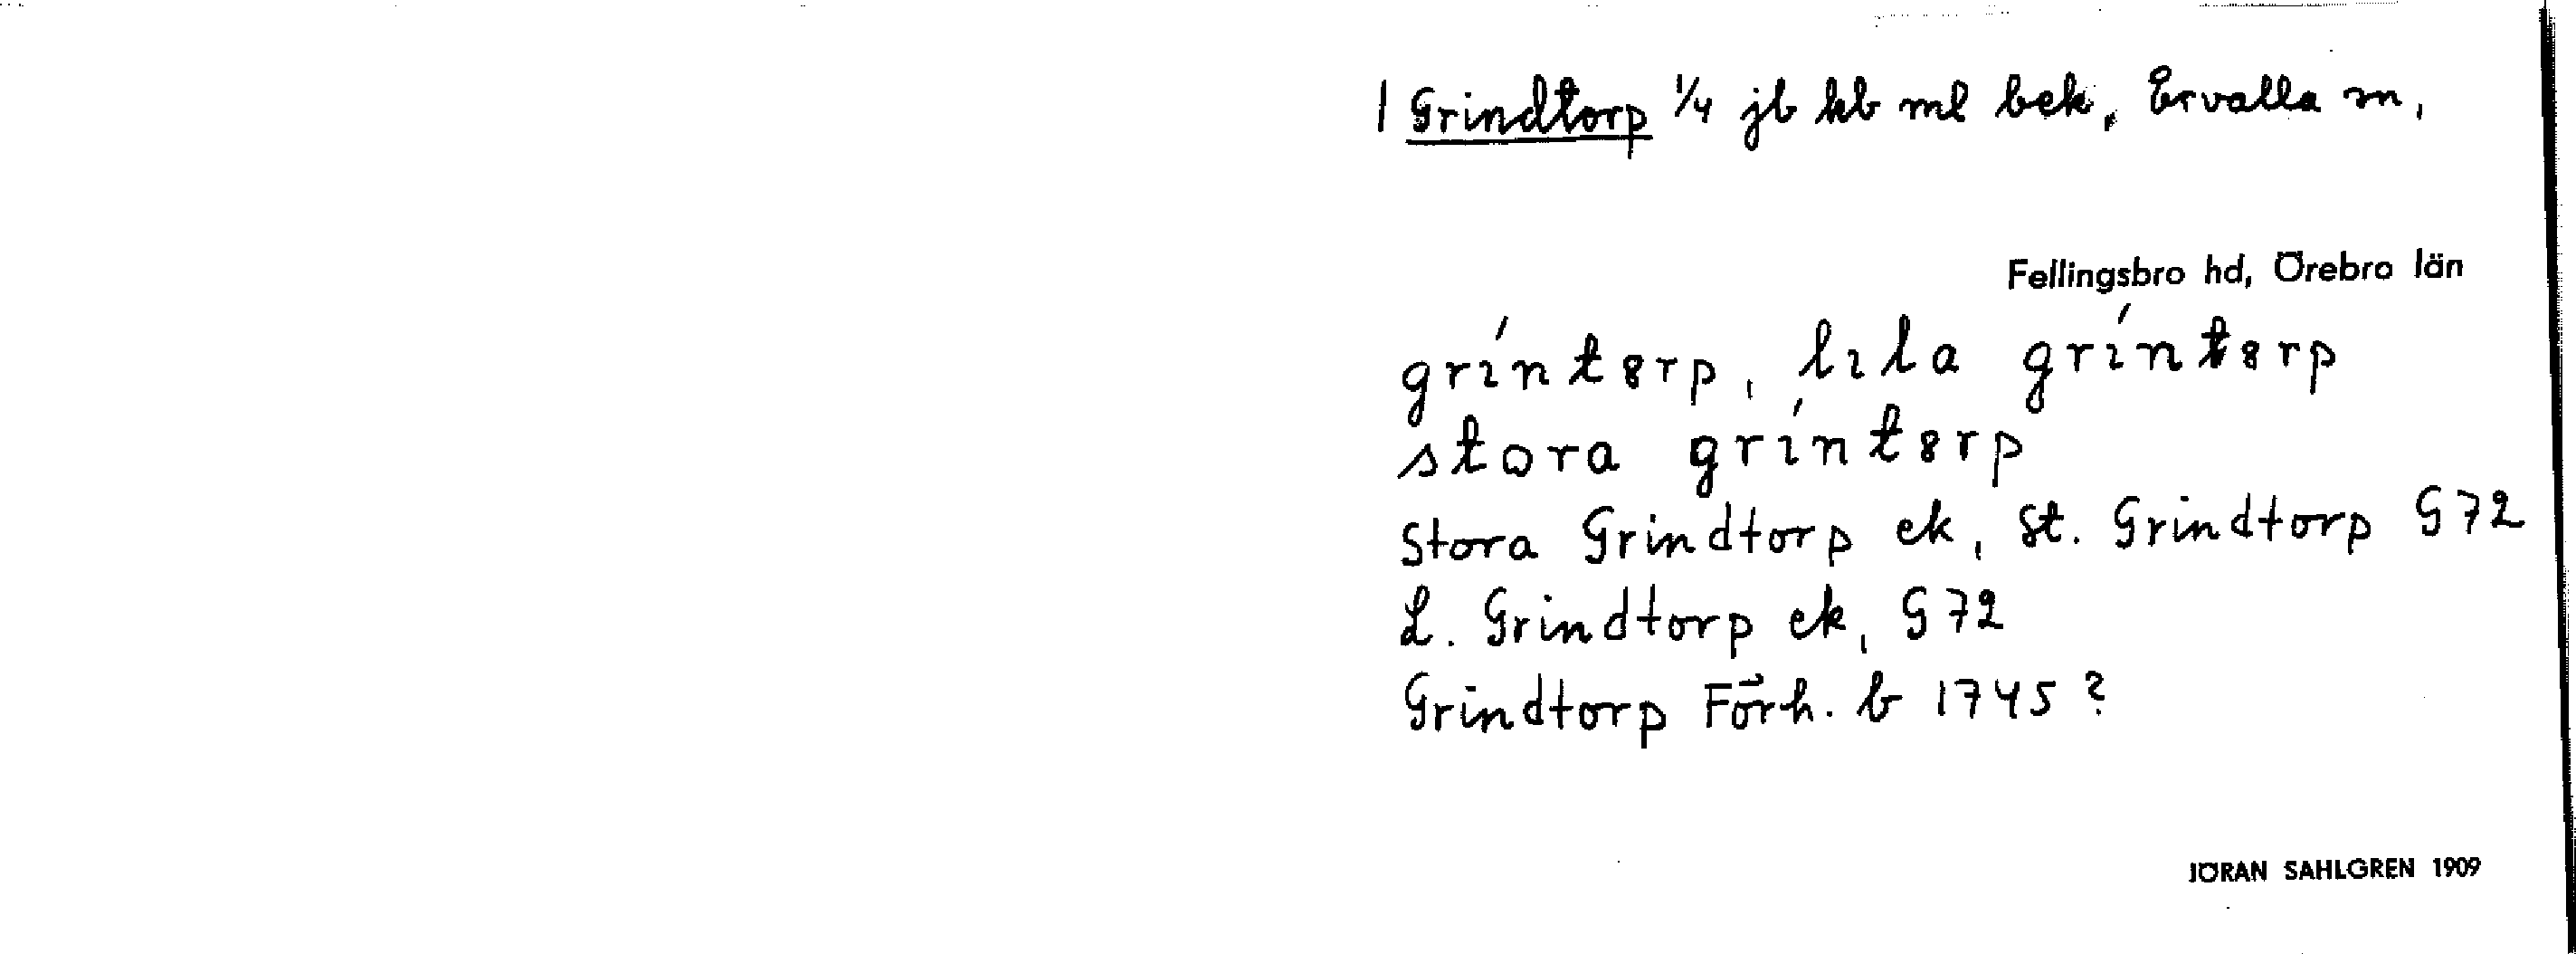 1 Grindtorp ¼ jb kb ml bek, Ervalla sn,
Fellingsbro hd, Örebro län
grı́nt8rp, lıla grı́nt8rp
stora grı́nt8rp
Stora Grindtorp ek, St. Grindtorp G72
L. Grindtorp ek, G72
Grindtorp Förh. b 1745?
JÖRAN SAHLGREN 1909